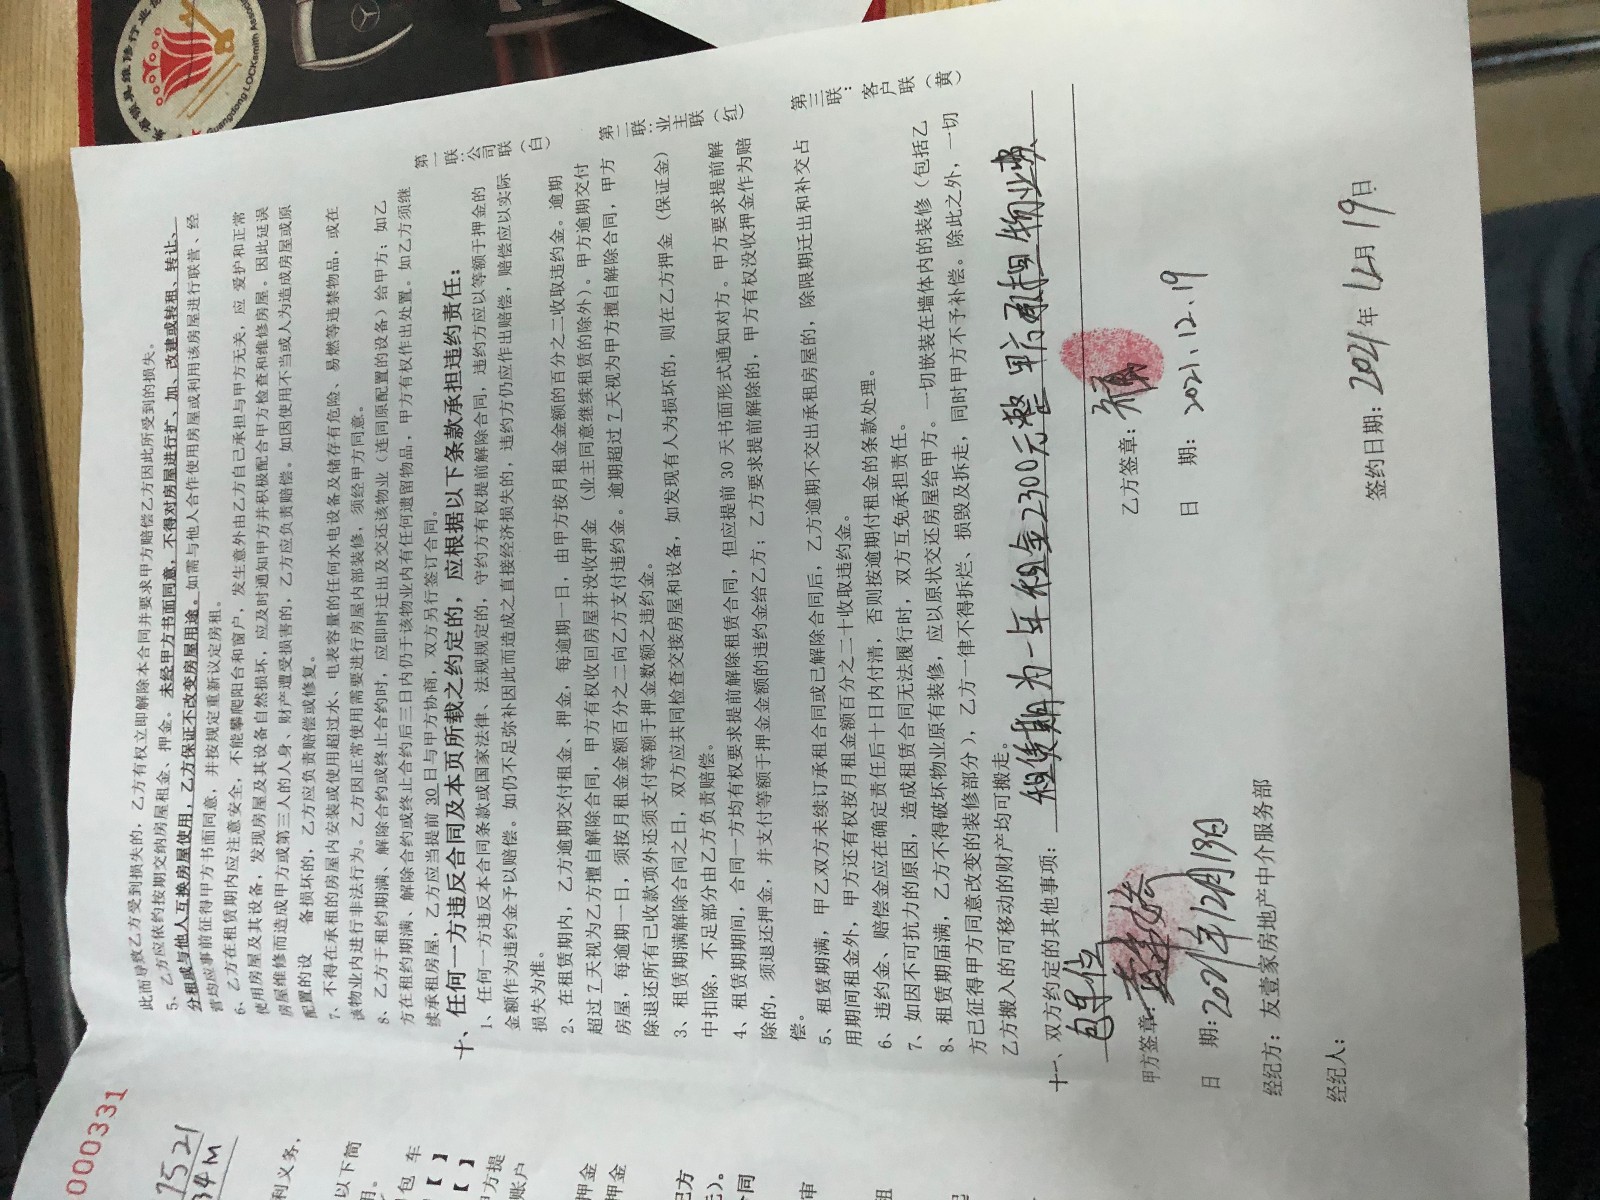 此而导致乙方受到损失的，乙方有权立即解除本合同并要求甲方赔偿乙方因此所受到的损失。
5、乙方应依约按期交纳房屋租金、押金。未经甲方书面同意，不得对房屋进行扩、加、改建或转租、转让、
分租或与他人互换房屋使用，乙方保证不改变房屋用途。如需与他人合作使用房屋或利用该房屋进行联营、经
营均应事前征得甲方书面同意，并按规定重新议定房租。
6、乙方在租赁期内应注意安全，不能攀爬阳台和窗户，发生意外由乙方自己承担与甲方无关，应 爱护和正常
使用房屋及其设备，发现房屋及其设备自然损坏，应及时通知甲方并积极配合甲方检查和维修房屋。因此延误
房屋维修而造成甲方或第三人的人身、财产遭受损害的，乙方应负责赔偿。如因使用不当或人为造成房屋或原
配置的设 备损坏的，乙方应负责赔偿或修复。
7、不得在承租的房屋内安装或使用超过水、电表容量的任何水电设备及储存有危险、易燃等违禁物品，或在
该物业内进行非法行为。乙方因正常使用需要进行房屋内部装修，须经甲方同意。
8、乙方于租约期满、解除合约或终止合约时，应即时迁出及交还该物业（连同原配置的设备）给甲方；如乙
方在租约期满、解除合约或终止合约后三日内仍于该物业内有任何遗留物品，甲方有权作出处置。如乙方须继
续承租房屋，乙方应当提前 30 日与甲方协商，双方另行签订合同。
十、任何一方违反合同及本页所载之约定的，应根据以下条款承担违约责任：
1、任何一方违反本合同条款或国家法律、法规规定的，守约方有权提前解除合同，违约方应以等额于押金的
金额作为违约金予以赔偿。如仍不足弥补因此而造成之直接经济损失的，违约方仍应作出赔偿，赔偿应以实际
损失为准。
2、在租赁期内，乙方逾期交付租金、押金，每逾期一日，由甲方按月租金金额的百分之二收取违约金。逾期
超过 7 天视为乙方擅自解除合同，甲方有权收回房屋并没收押金（业主同意继续租赁的除外）。甲方逾期交付
房屋，每逾期一日，须按月租金金额百分之二向乙方支付违约金。逾期超过 7 天视为甲方擅自解除合同，甲方
除退还所有已收款项外还须支付等额于押金数额之违约金。
3、租赁期满解除合同之日，双方应共同检查交接房屋和设备，如发现有人为损坏的，则在乙方押金（保证金）
中扣除，不足部分由乙方负责赔偿。
4、租赁期期间，合同一方均有权要求提前解除租赁合同，但应提前 30 天书面形式通知对方。甲方要求提前解
除的，须退还押金，并支付等额于押金金额的违约金给乙方；乙方要求提前解除的，甲方有权没收押金作为赔
偿。
5、租赁期满，甲乙双方未续订承租合同或已解除合同后，乙方逾期不交出承租房屋的，除限期迁出和补交占
用期间租金外，甲方还有权按月租金额百分之二十收取违约金。
6、违约金、赔偿金应在确定责任后十日内付清，否则按逾期付租金的条款处理。
7、如因不可抗力的原因，造成租赁合同无法履行时，双方互免承担责任。
8、租赁期届满，乙方不得破坏物业原有装修，应以原状交还房屋给甲方。一切嵌装在墙体内的装修（包括乙
方已征得甲方同意改变的装修部分），乙方一律不得拆烂、损毁及拆走，同时甲方不予补偿。除此之外，一切
乙方搬入的可移动的财产均可搬走。
十一、双方约定的其他事项：租赁期为一年租金2300元整 甲方承担物业费
包车位
甲方签章：
乙方签章：
日 期：2021年12月19日
日 期：2021.12.19
经纪方：友壹家房地产中介服务部
经纪人：
签约日期：2021年12月19日
第一联：公司联（白）
第二联：业主联（红）
第三联：客户联（黄）
000331
7521
34M
利义务，
以下简
用。
包 车
【 】
【 】
方提
账户
押金
押金
方
元）。
同
审
租
Guangdong LOCKsmith Association